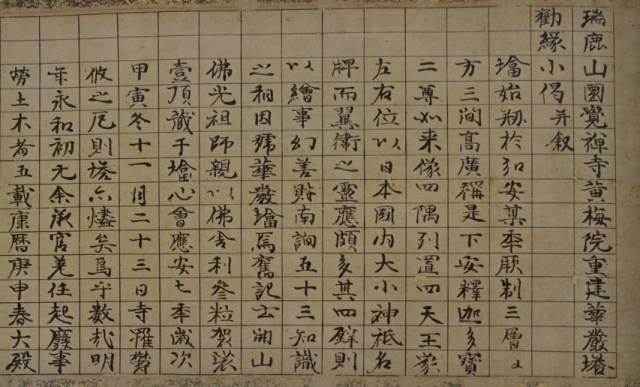 瑞鹿山圓覺禪寺黃梅院重建華嚴塔
勸緣小偈并叙
墖始剏於弘安某年厥制三層
方三間高廣稱是下安釋迦多寶
二尊如来像四隅列置四天王象
左右位以日本國内大小神祇名
牌而翼衛之靈應頗多其四壁則
以繪事幻善財南詢五十三知識
之相因號華嚴墖焉舊記云開山
佛光祖師親以佛舎利叁粒袈裟
壹頂藏于墖心會應安七年歳次
甲寅冬十一月二十三日寺罹欝
攸之厄則塔亦燼矣烏乎數哉明
年永和初元余承官差任起廢事
勞土木者五載康曆庚申春大殿